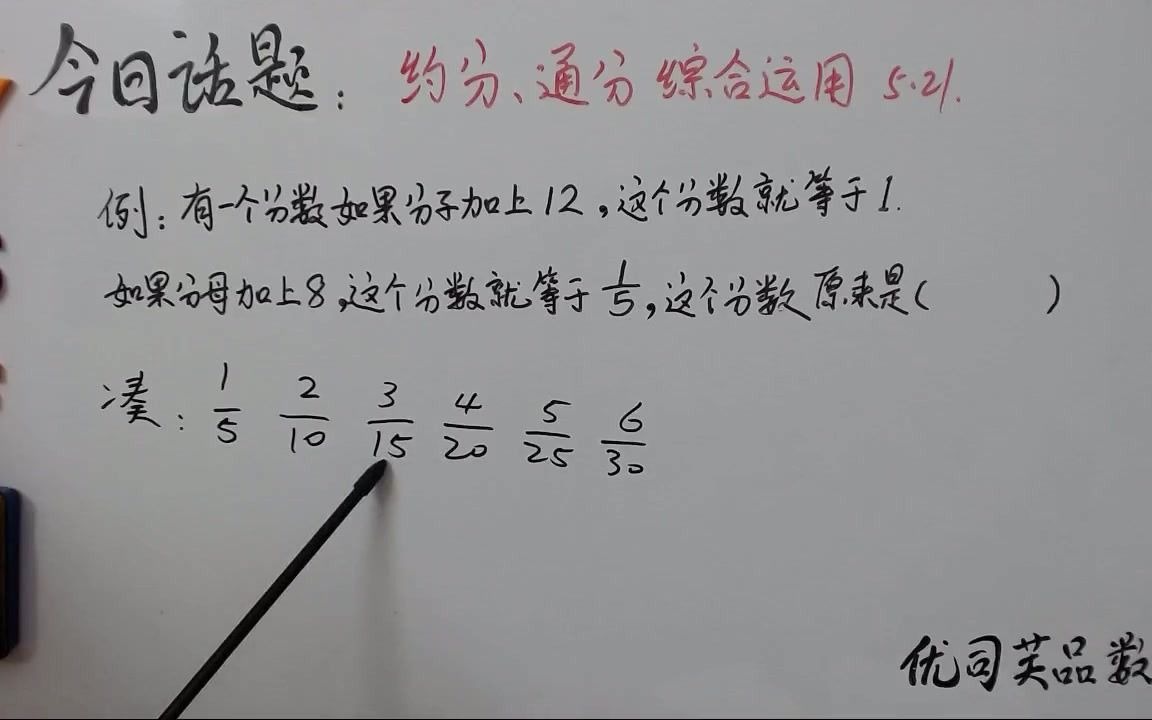 今日话题：约分、通分 综合运用 5.21.
例：有一个分数如果分子加上12，这个分数就等于1.
如果分母加上8，这个分数就等于1/5，这个分数原来是(　　)
凑：1/5 2/10 3/15 4/20 5/25 6/30
优司芙品数